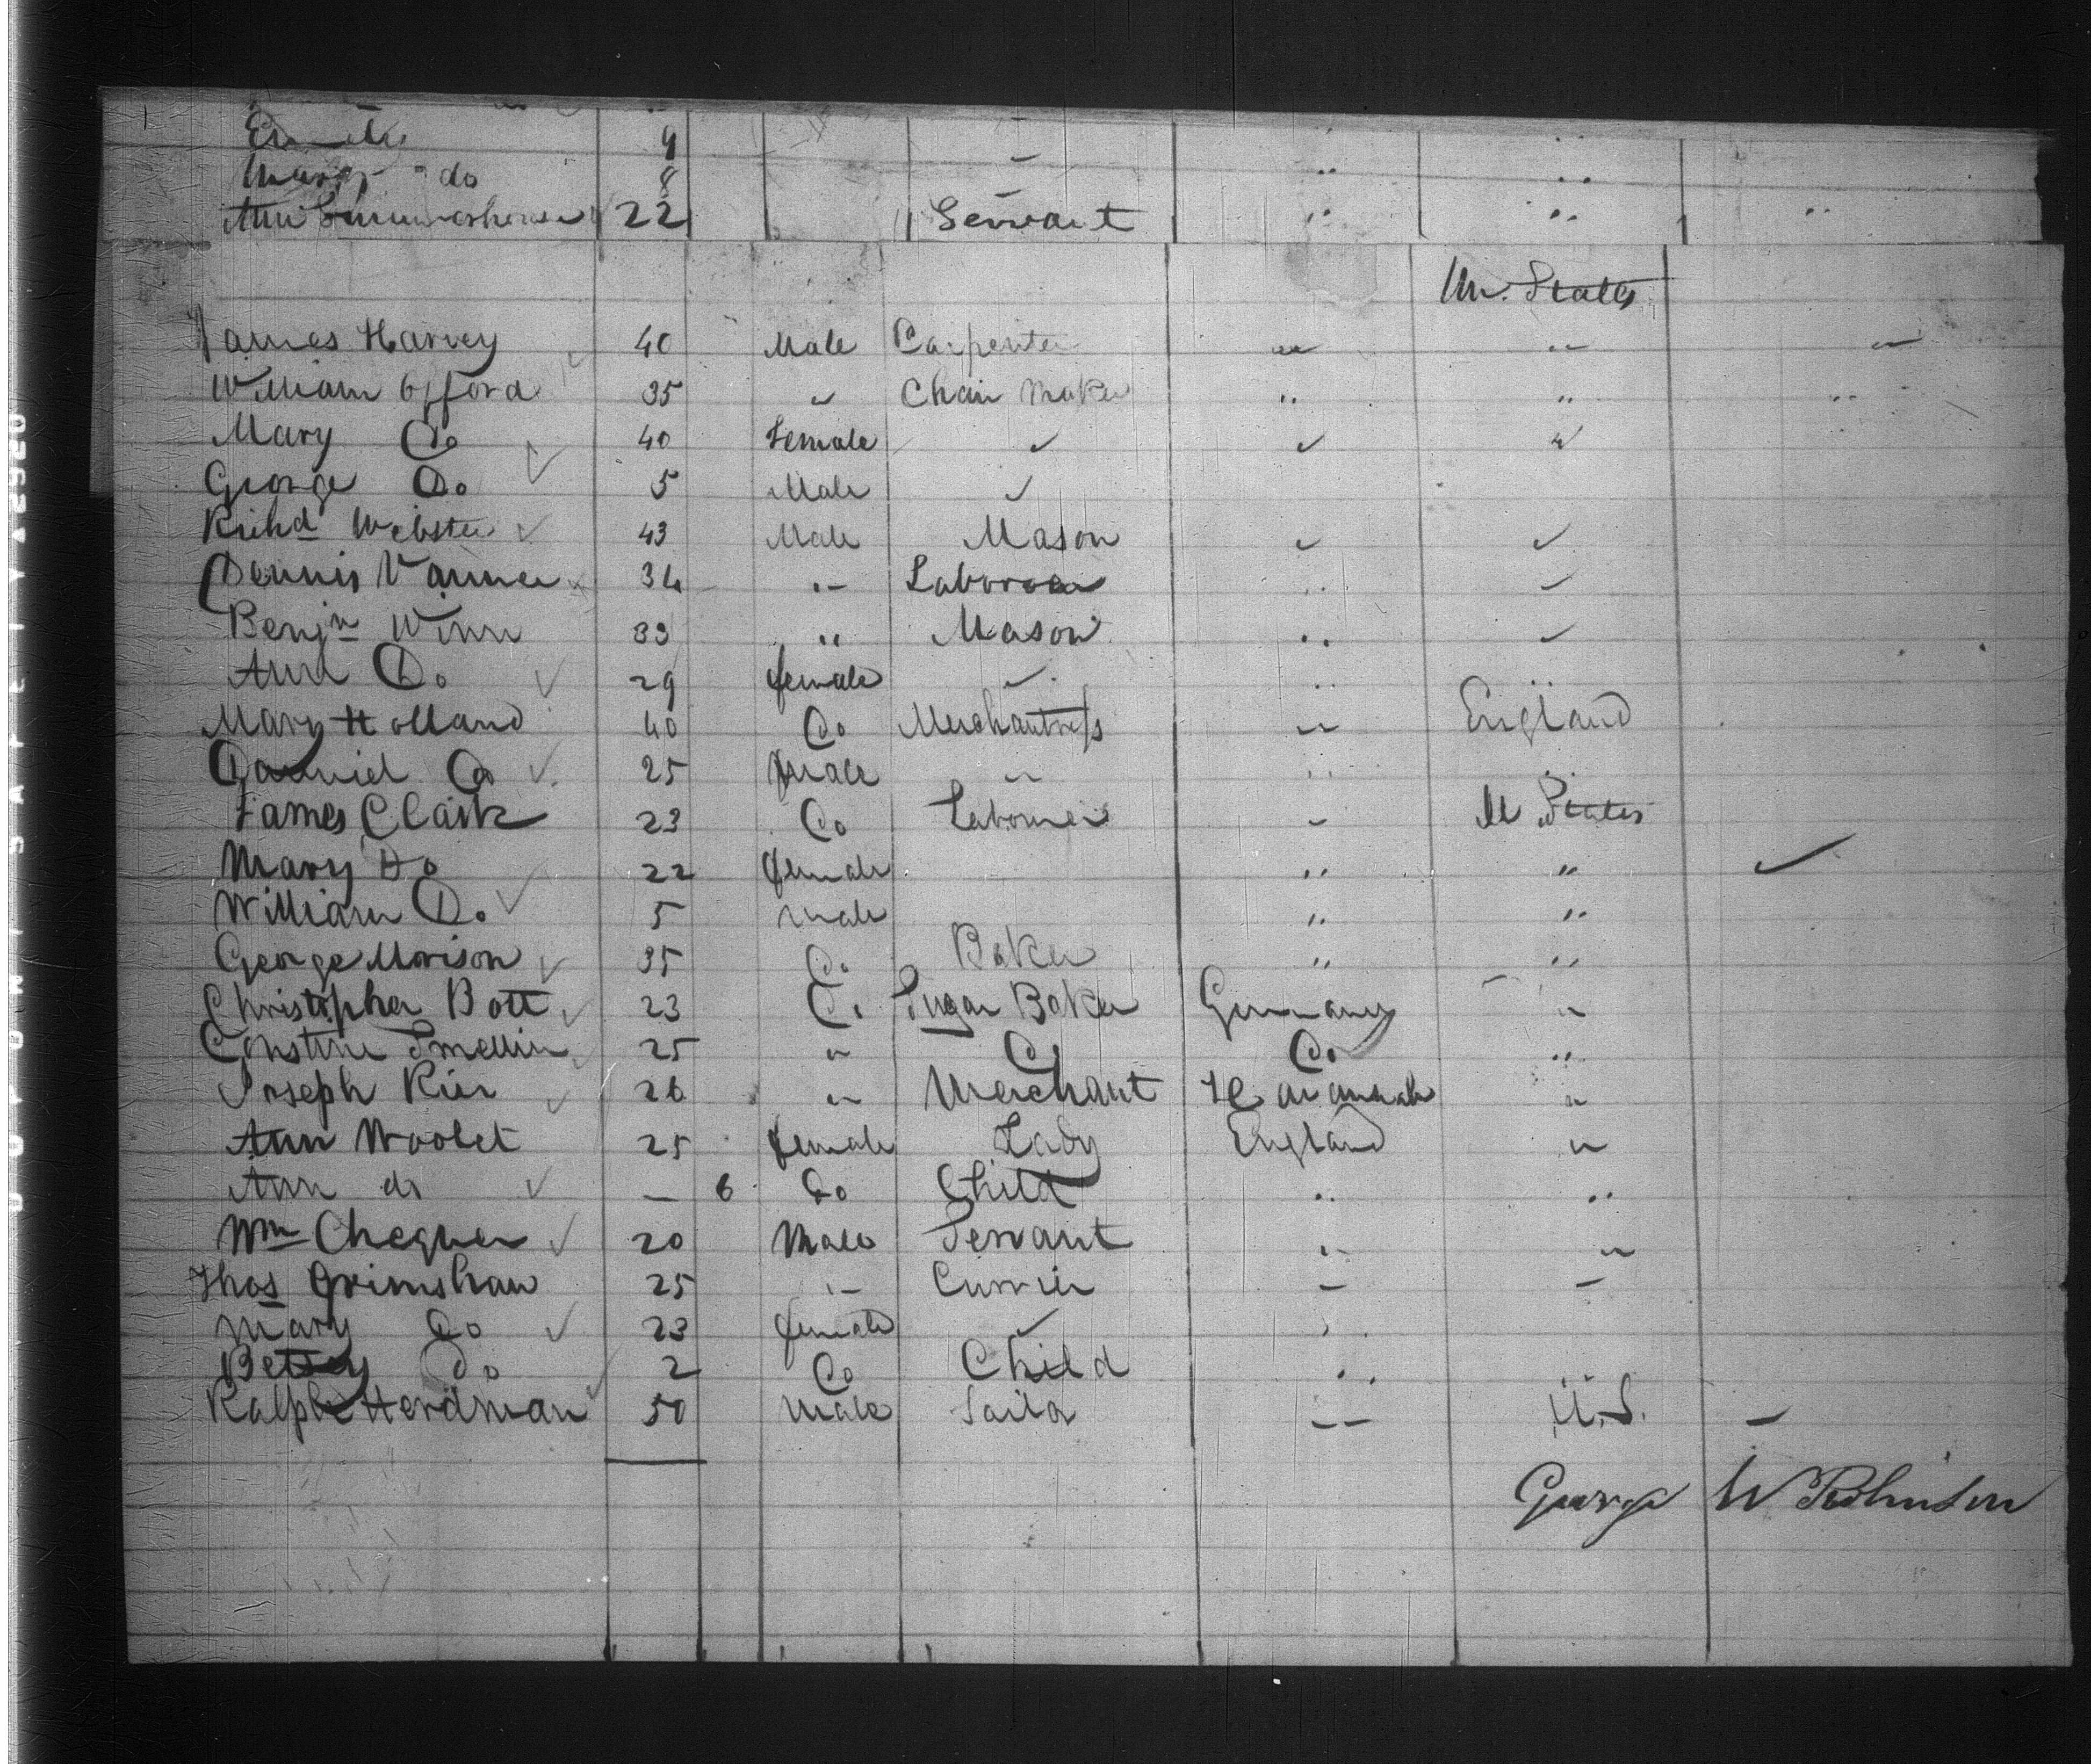 9
Mary do 8
Ann 22 Servant " " "
Un. States
James Harvey 40 Male Carpenter " " "
William Offord 35 " Chair Maker " " "
Mary Do 40 Female " " "
George Do 5 Male "
Richd Webster 43 Male Mason " "
Dennis 34 " Laborer " "
Benjn Winn 33 " Mason " "
Ann Do 29 female " " "
Mary Holland 40 Do Merchantress " England
Daniel Do 25 Male " " "
James Clark 23 Do Labourer " U States
Mary Do 22 female " "
William Do 5 male " "
George Morison 35 Do Baker " "
Christopher Bott 23 Do Sugar Baker Germany "
25 " Do Do "
Joseph 26 " Merchant "
Ann Woolet 25 female Lady England "
Ann do – 6 Do Child " "
Wm Chequer 20 Male Servant " "
Thos Grimshaw 25 " Currier " "
Mary Do 23 female " "
Betsey Do 2 Do Child "
Ralph Herdman 50 Male " U.S.
George W Robinson